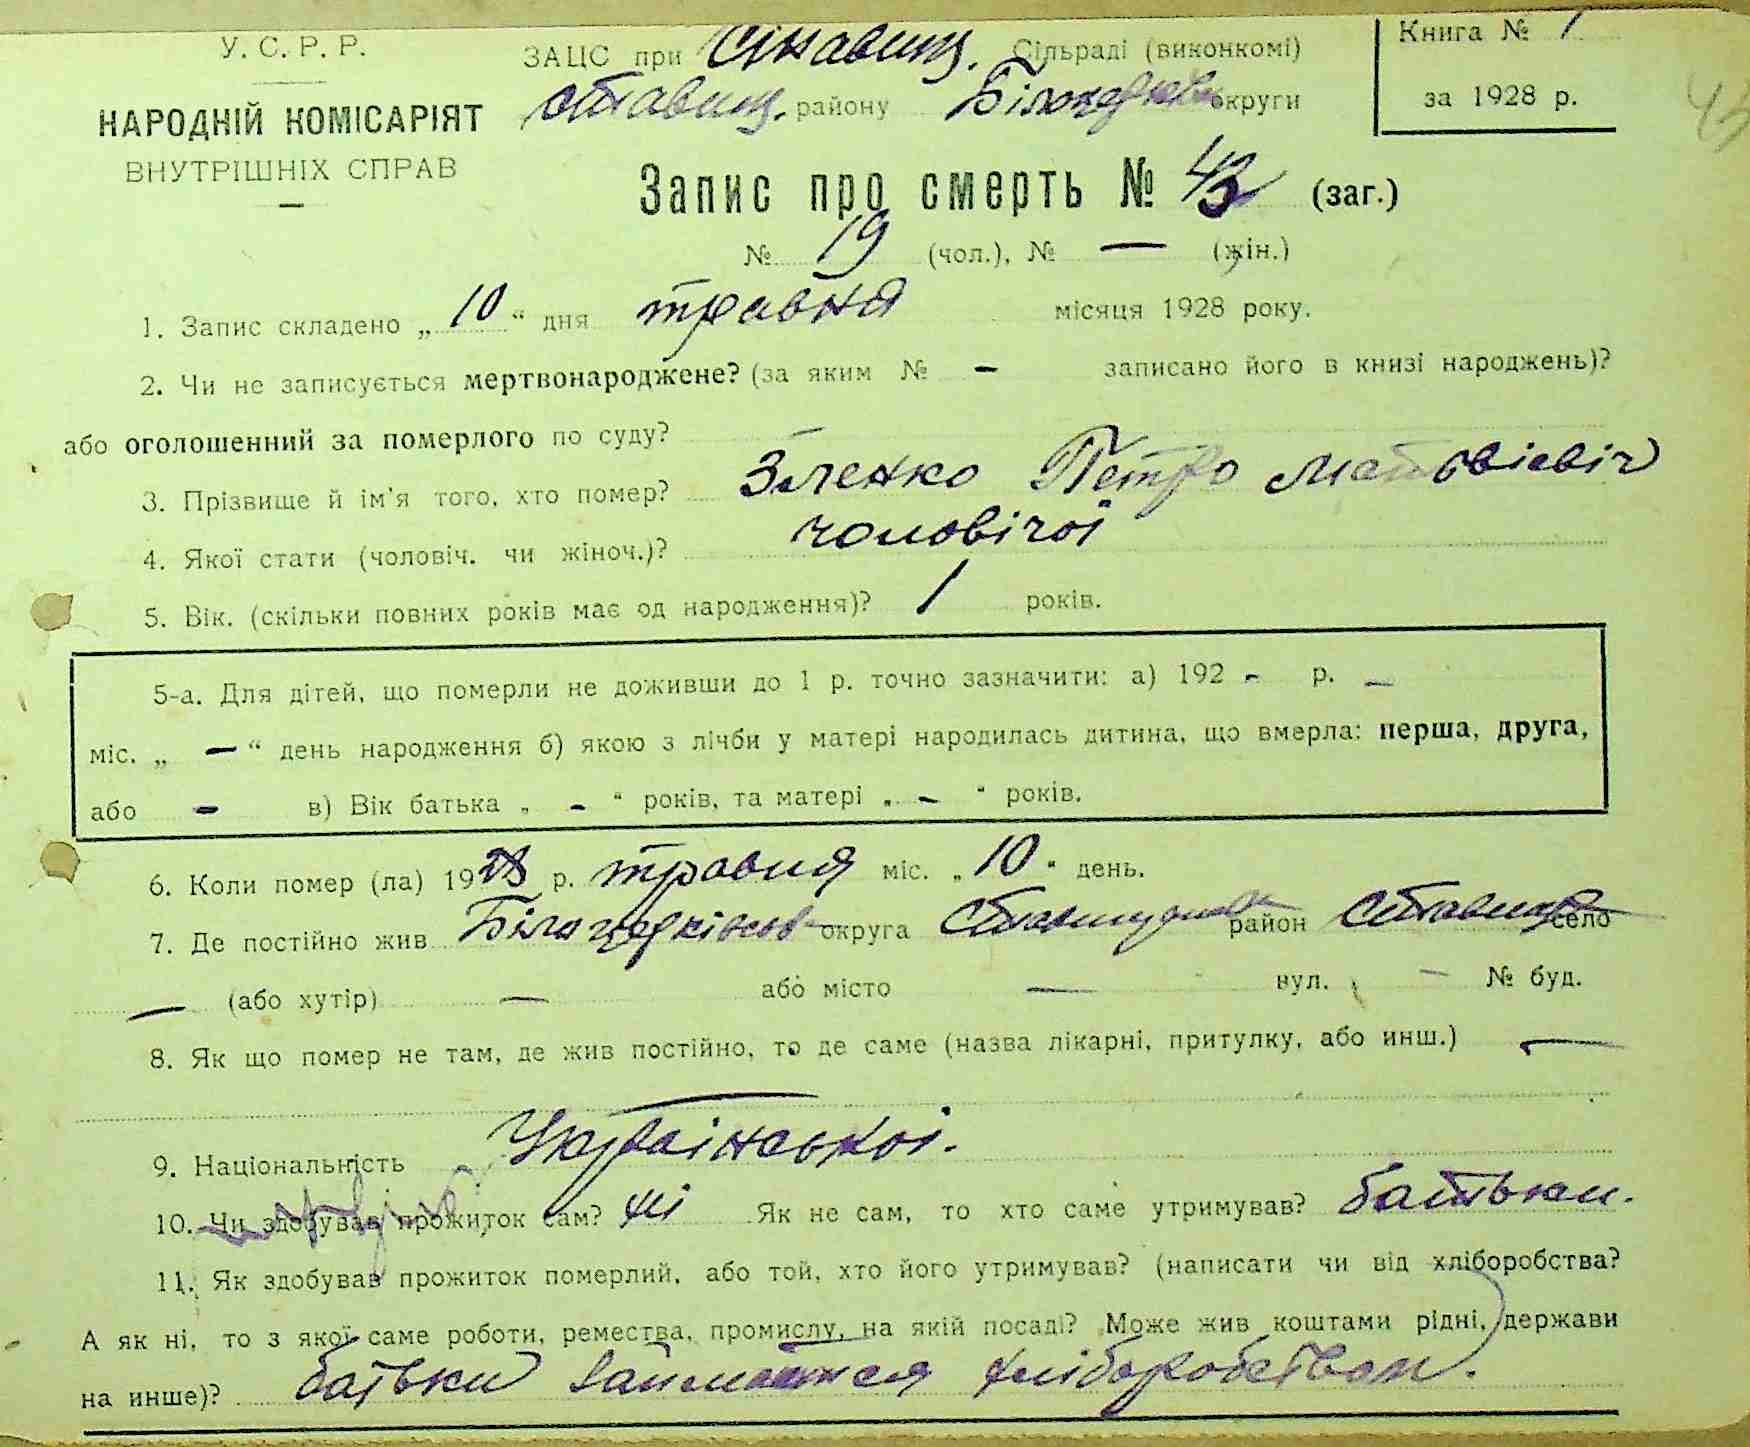 У. С. Р. Р.
НАРОДНІЙ КОМІСАРІЯТ
ВНУТРІШНІХ СПРАВ
ЗАЦС при Ставищ. Сільраді (виконкомі)
Ставищ. району Білоцерків округи
Книга № 1
за 1928 р.
43
Запис про смерть № 43 (заг.)
№ 19 (чол.), № — (жін.)
1. Запис складено „ 10 “ дня травня місяця 1928 року.
2. Чи не записується мертвонароджене? (за яким № — записано його в книзі народжень)?
або оголошенний за померлого по суду? —
3. Прізвище й ім'я того, хто помер? Зіленко Петро Матьвієвіч
4. Якої стати (чоловіч. чи жіноч.)? чоловічої
5. Вік. (скільки повних років має од народження)? 1 років.
5-а. Для дітей, що померли не доживши до 1 р. точно зазначити: а) 192 - р. —
міс. „ — “ день народження б) якою з лічби у матері народилась дитина, що вмерла: перша, друга,
або - в) Вік батька „ - “ років, та матері „ - “ років.
6. Коли помер (ла) 1928 р. травня міс. „ 10 “ день.
7. Де постійно жив Білоцерківськ округа район Ставища село
— (або хутір) — або місто — вул. — № буд.
8. Як що помер не там, де жив постійно, то де саме (назва лікарні, притулку, або инш.) —
9. Національність Української.
10. Чи здобував прожиток сам? ні Як не сам, то хто саме утримував? батьки.
11. Як здобував прожиток померлий, або той, хто його утримував? (написати чи від хліборобства?
А як ні, то з якої саме роботи, ремества, промислу, на якій посаді? Може жив коштами рідні, держави
на инше)? батьки займаются хліборобством.